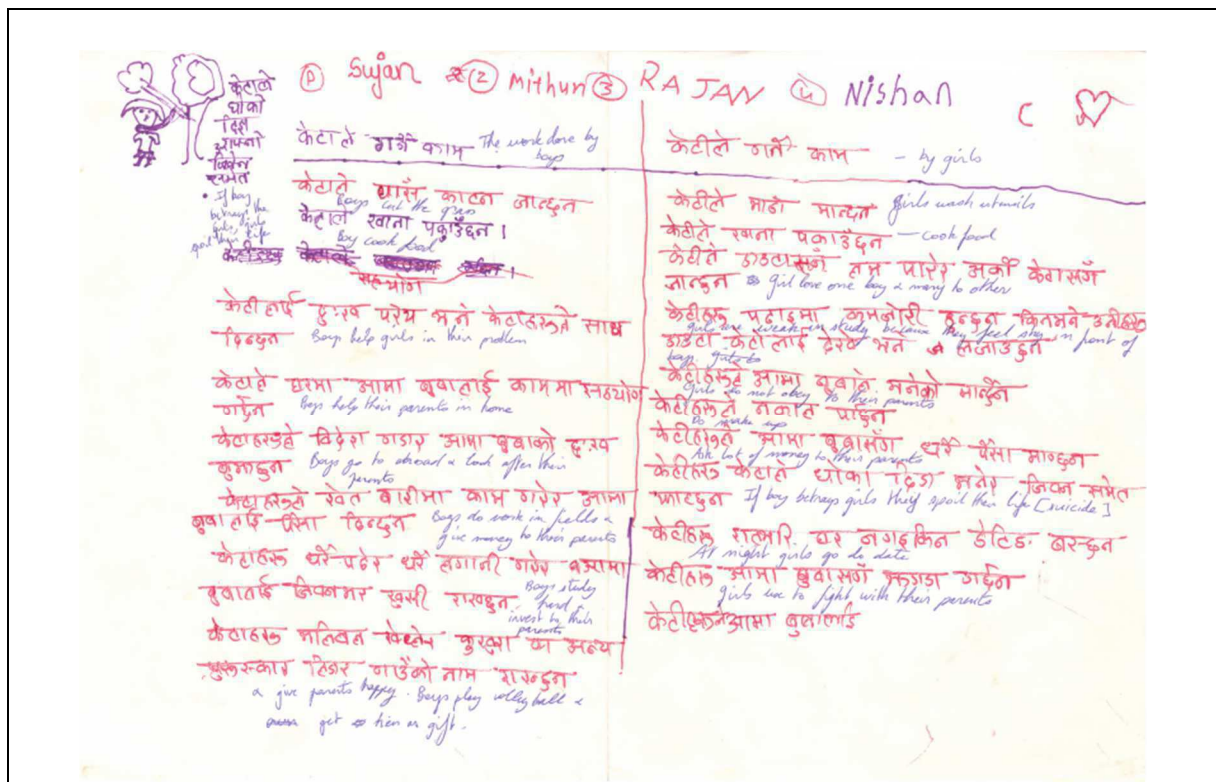 ① Sujan ② Mithun ③ RAJAN ④ Nishan
C
केटाले
धोका
दिश
आफ्नो
जिवन
समेत
• If boy
betrays the
girls, girls
spoil their life
केटाले गर्ने काम The work done by
boys
केटाले घाँस काट्न जान्छन
Boys cut the grass
केटाले खाना पकाउँछन।
Boy cook food
सहयोग
केटीलाई दुःख परेय भने केटाहरुले साथ
दिन्छन Boys help girls in their problem
केटाले घरमा आमा बुवालाई काममा सहयोग
गर्छन Boys help their parents in home
केटाहरुले विदेश गएर आमा बुवाको दुःख
बुझाछन Boys go to abroad & look after their
parents
केटाहरुले खेत बारीमा काम गरेर आमा
बुवालाई पैसा दिन्छन Boys do work in fields &
give money to their parents
केटाहरु धेरै पढेर धेरै लगानी गरेर आमा
बुवालाई जिवनभर खुसी राख्छन Boys study
hard &
invest to their
parents
केटाहरु भलिबल खेलेर कुखुरा या अन्य
पुरुस्कार लिएर गाउँको नाम राख्छन
& give parents happy. Boys play volleyball &
get hen as gift.
केटीले गर्ने काम – by girls
केटीले भाडा माझ्छन Girls wash utensils
केटीले खाना पकाउँछन – cook food
केटीले एउटासँग लभ पारेर अर्को केटासँग
जान्छन Girl love one boy & marry to other
केटीहरु पढाइमा कमजोरी हुन्छन किनभने उनीहरु
Girls are weak in study because they feel shy in front of
एउटा केटालाई देख्यो भने लजाउछन
boys
केटीहरुले आमा बुवाले भनेको मान्दैन
Girls do not obey to their parents
केटीहरुले नकल पार्छन
Do make up
केटीहरुले आमा बुवासँग धेरै पैसा माग्छन
Ask lot of money to their parents
केटीहरु केटाले धोका दियो भनेर जिवन समेत
फाल्छन If boy betrays girls they spoil their life [suicide]
केटीहरु रातभरि घर नगइकन डेटिङ बस्छन
At night girls go do date
केटीहरु आमा बुवासँग झगडा गर्छन
girls use to fight with their parents
केटीहरुले आमा बुवालाई